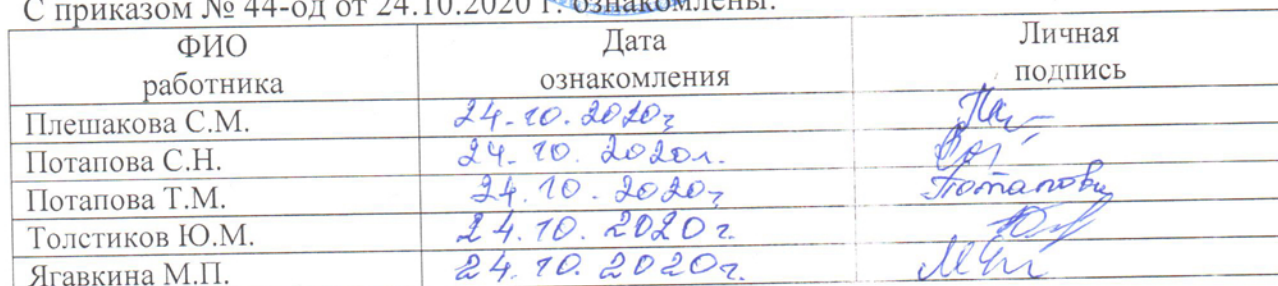 С приказом № 44-од от 24.10.2020 г. ознакомлены:
ФИО работника Дата ознакомления Личная подпись
Плешакова С.М. 24.10.2020г
Потапова С.Н. 24.10.2020г.
Потапова Т.М. 24.10.2020г Потапова
Толстиков Ю.М. 24.10.2020г.
Ягавкина М.П. 24.10.2020г.